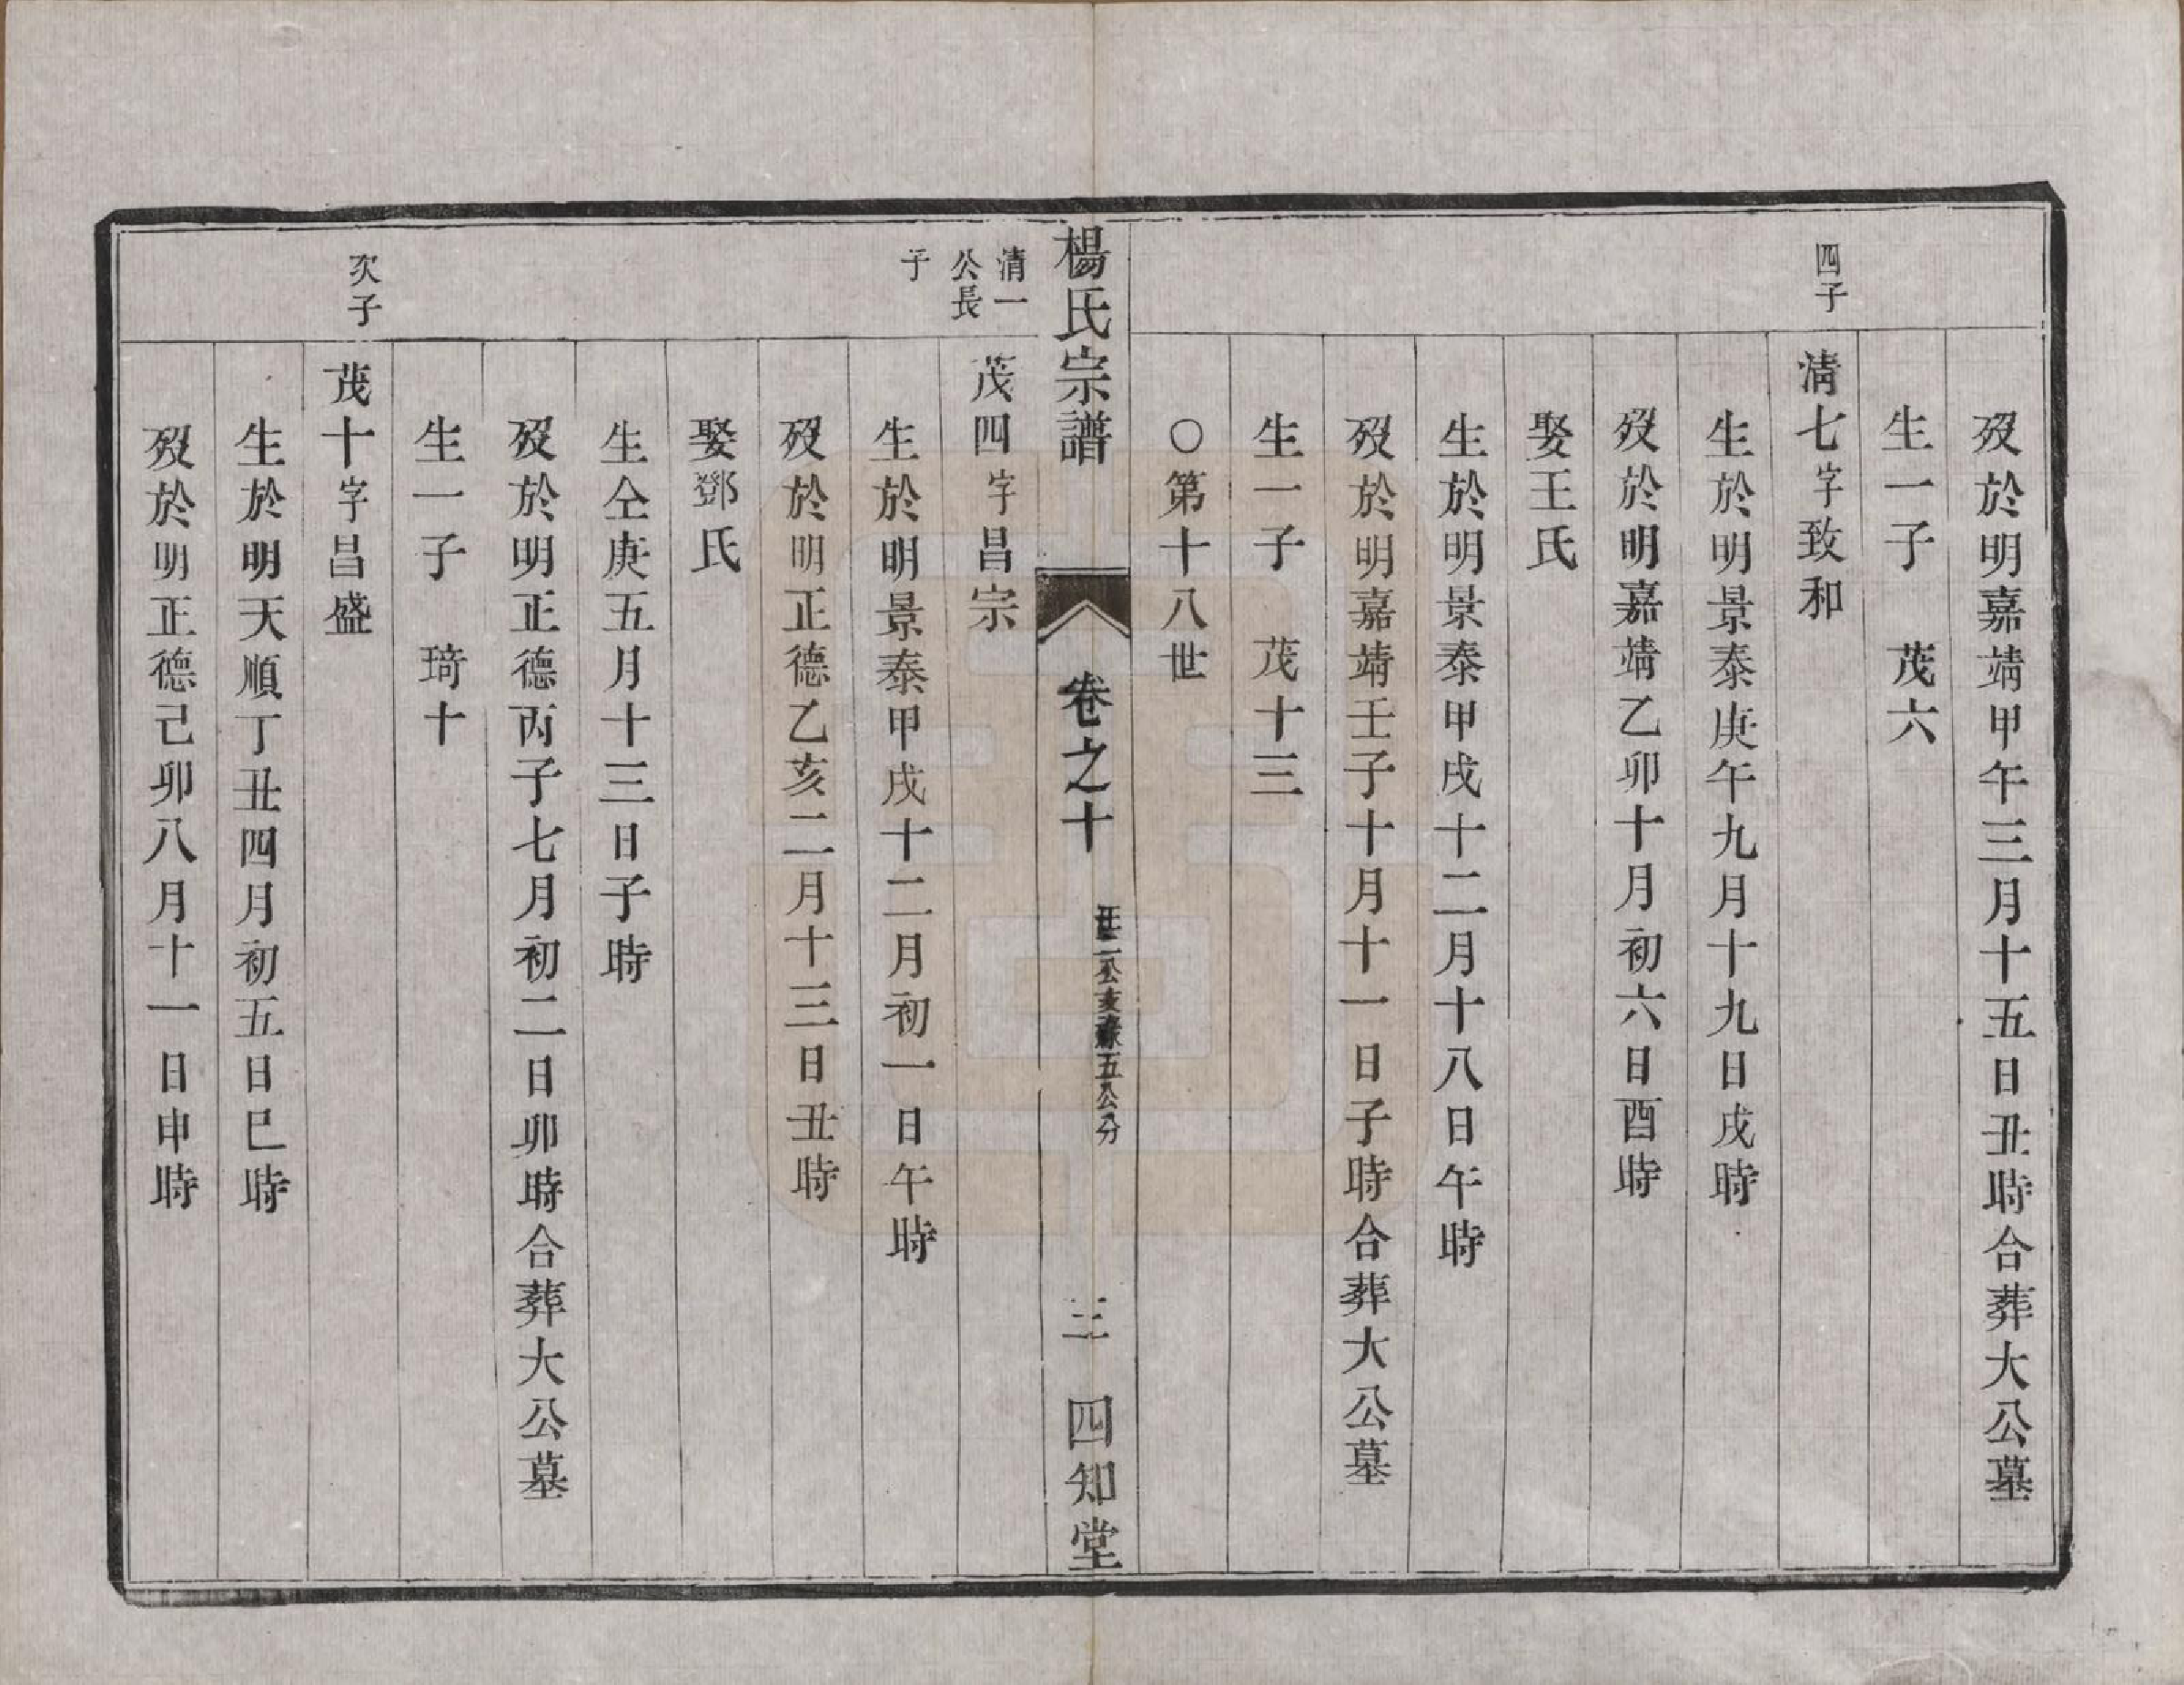 歿於明嘉靖甲午三月十五日丑時合葬大公墓
生一子　茂六
四子
清七字致和
生於明景泰庚午九月十九日戌時
歿於明嘉靖乙卯十月初六日酉時
娶王氏
生於明景泰甲戌十二月十八日午時
歿於明嘉靖壬子十月十一日子時合葬大公墓
生一子　茂十三
〇第十八世
楊氏宗譜　卷之十　三　四知堂
清一
公長
子
茂四字昌宗
生於明景泰甲戌十二月初一日午時
歿於明正德乙亥二月十三日丑時
娶鄧氏
生仝庚五月十三日子時
歿於明正德丙子七月初二日卯時合葬大公墓
生一子　琦十
次子
茂十字昌盛
生於明天順丁丑四月初五日巳時
歿於明正德己卯八月十一日申時